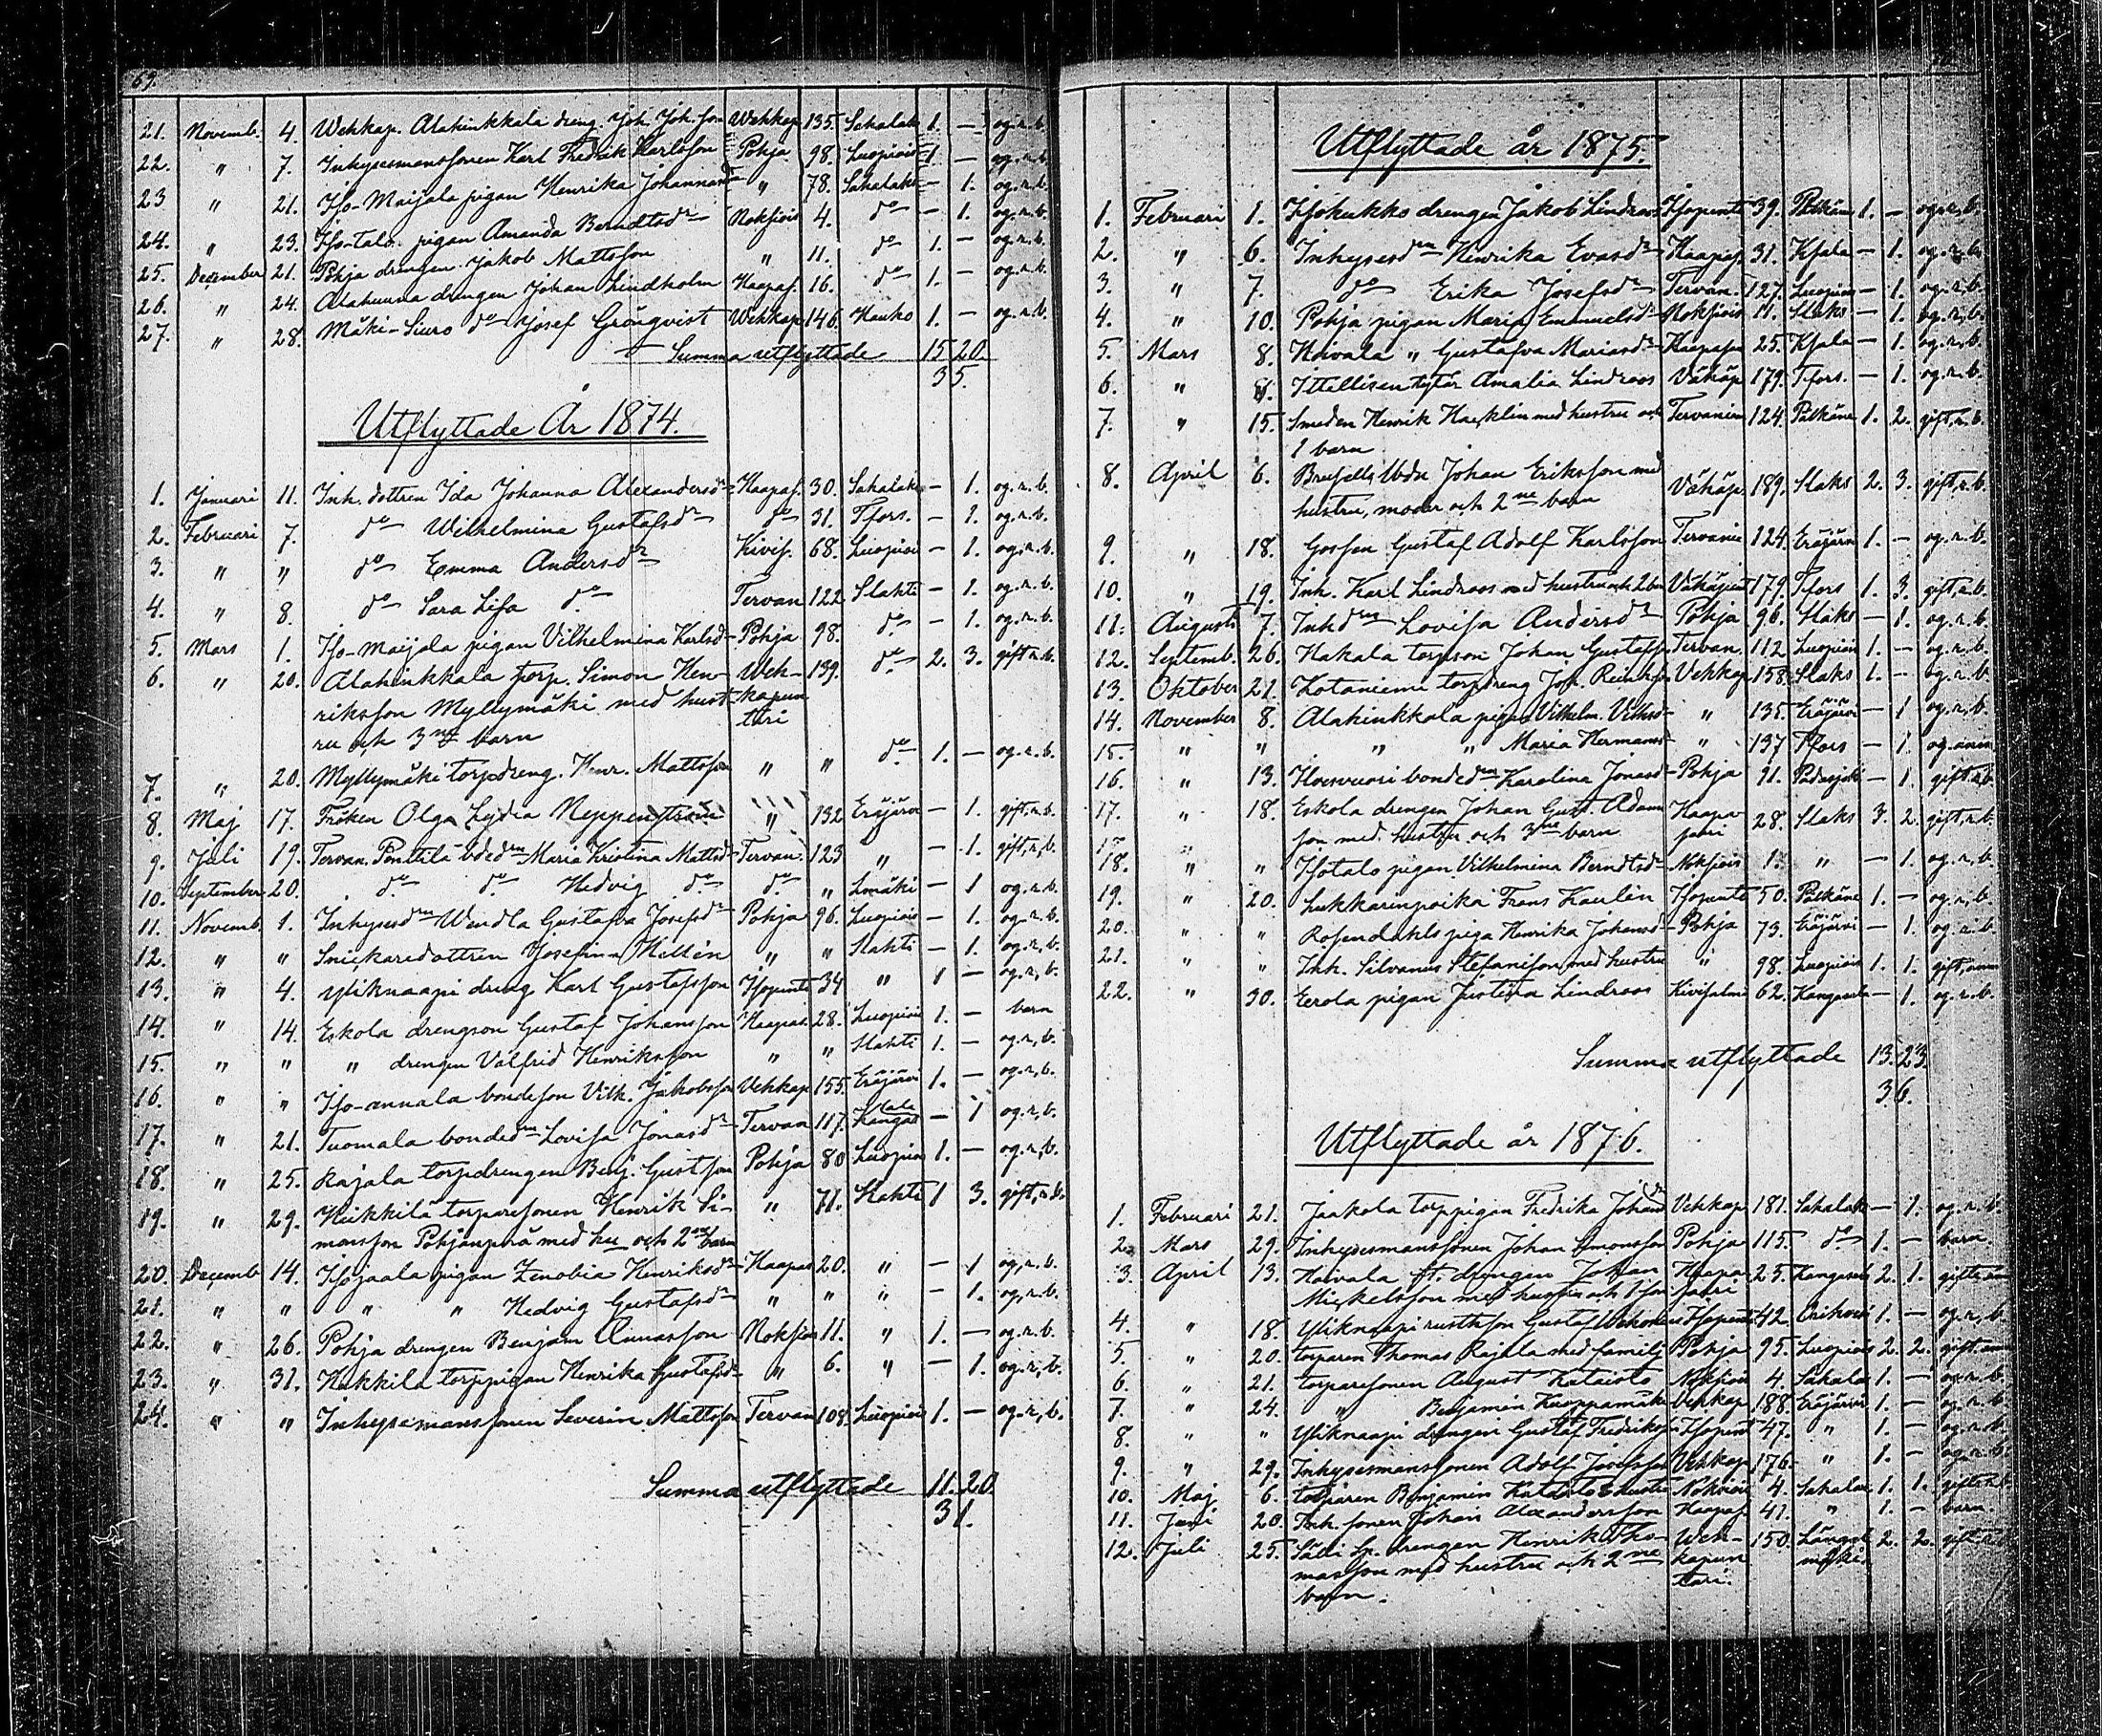 69.
21. Novemb. 4. Wehkap. Alahinkkala dreng Joh. Joh. son Wehkap 135. Sahalak 1. — og. n. b.
22. " 7. Inhysesmanssonen Karl Fredrik Karlsson Pohja 98. Luopiois 1. — og. n. b.
23 " 21. Iso-Maijala pigan Henrika Johannasdr " 78. Sahalaks — 1. og. n. b.
24. " 23. Iso-talo pigan Amanda Berndtsdr Noksiois 4. do — 1. og. n. b.
25. December 21. Pohja drengen Jakob Mattsson " 11. do 1. — og. n. b.
26. " 24. Alahuuna drengen Johan Lindholm Haapas. 16. do 1. — og. n. b.
27. " 28. Mäki-Siuro do Josef Grönqvist Wehkap 146. Hauho 1. — og. n. b.
Summa utflyttade 15 20.
35.
Utflyttade År 1874.
1. Januari 11. Inh. dottren Ida Johanna Alexandersdr Haapas. 30. Sahalaks — 1. og. n. b.
2. Februari 7. do Wilhelmina Gustafsdr do 31. Tfors. — 1. og. n. b.
3. " " do Emma Andersdr Kivis. 68. Luopiois — 1. og. n. b.
4. " 8. do Sara Lisa do Tervan 122 Slahti — 1. og. n. b.
5. Mars 1. Iso-maijala pigan Vilhelmina Karlsd Pohja 98. do — 1. og. n. b.
6. " 20. Alahinkkala torp. Simon Hen- Weh- 139. do 2. 3. gift n. b.
riksson Myllymäki med hust- kapun
ru och 3ne barn tari
7. " 20. Myllymäki torpdreng. Henr. Mattsson " " do 1. — og. n. b.
8. Maj 17. Fröken Olga Lydia Neppenström " 132 Eräjärvi — 1. gift, n. b.
9. Juli 19. Tervan. Penttilä bdedrn Maria Kristina Mattsd Tervan. 123 " — 1. gift, n, b.
10. September 20. do do Hedvig do do " Lmäki — 1 og. n. b.
11. Novemb. 1. Inhysesdrn Wendla Gustafva Josefsdr Pohja 96. Luopiois — 1. og. n. b.
12. " " Snickaredottren Josefina Millén " " Slahti — 1. og. n, b.
13. " 4. Yliknaapi dreng Karl Gustafsson Isopunta 34 " 1 — og. n, b.
14. " 14. Eskola drengson Gustaf Johansson Haapas. 28. Luopiois 1. — barn
15. " " " drengen Valfrid Henriksson " " Slahti 1. — og. n, b.
16. " " Iso-annala bondeson Vilh. Jakobsson Vehkap 155. Eräjärvi 1. — og. n, b.
17. " 21. Tuomala bondedrn Lovisa Jonasdr Tervan 117. Kangasala — 1 og. n, b.
18. " 25. Rajala torpdrengen Benj. Gustfson Pohja 80 Luopiois 1. — og. n, b.
19. " 29. Heikkilä torparesonen Henrik Si- " 71. Slahti 1 3. gift, n. b.
monsson Pohjanperä med hu och 2ne barn
20. Decemb 14. Isojaala pigan Zenobia Henriksdr Haapas 20. " — 1 og. n. b.
21. " " " " Hedvig Gustafsdr " " " — 1. og, n. b.
22. " 26. Pohja drengen Benjam Annasson Noksiois 11. " 1. — og. n. b.
23. " 31. Heikkilä torppigan Henrika Gustafsd " 6. " — 1. og. n, b.
24. " " Inhysesmanssonen Severin Mattsson Tervan 108. Luopiois 1. — og. n, b.
Summa utflyttade 11. 20.
31.
Utflyttade år 1875.
1. Februari 1. Isokukko drengen Jakob Lindroos Isopunta 39. Pälkäne 1. — og. n, b.
2. " 6. Inhysesdrn Henrika Evasdr Haapas. 31. Kfsala — 1. og. n. b.
3. " 7. do Erika Josefsdr Tervan. 127. Luopiois — 1. og. n, b.
4. " 10. Pohja pigan Maria Emanuelsdr Noksiois 11. Slaks — 1. og. n, b.
5. Mars 8. Hoivala " Gustafva Mariasdr Haapasa 25. Kfsala — 1. og. n, b.
6. " Ittellisen tytär Amalia Lindroos Vähäp 179. Tfors. — 1. og. n. b.
7. " 15. Smeden Henrik Hacklin med hustru och Tervaniem 124. Pälkäne 1. 2. gift, n. b.
1 barn
8. April 6. Johan Eriksson med Vähäp. 189. Slaks 2. 3. gift, n. b.
hustru, moder och 2ne barn
9. " 18. Gossen Gustaf Adolf Karlsson Tervanie 124. Eräjärvi 1. — og. n. b.
10. " 19. Inh. Karl Lindroos med hustru och 2 barn Vähäpunt 179. Tfors 1. 3. gift, n. b.
11. Augusti 7. Inhdrn Lovisa Andersdr Pohja 96. Slaks — 1. og. n. b.
12. Septemb. 26. Hakala torpson Johan Gustafsson Tervan. 112. Luopiois 1. — og. n. b.
13. Oktober 21. Kotaniemi torpdreng Joh. Reinhs Vehkap 158. Slaks 1. — og. n. b.
14. November 8. Alahinkkala pigan Vilhelm. Vilhsd " 135. Eräjärvi — 1 og. n, b.
15. " " " " Maria Hermansd " 137 Tfors — 1. og. anm
16. " 13. bondedrn Karolina Jonasd Pohja 91. Padasjoki — 1. gift, n. b.
17. " 18. Eskola drengen Johan Gust. Adam Haapa- 28. Slaks 3. 2. gift, n. b.
son med hustru och 3ne barn saari
18. " " Isotalo pigan Vilhelmina Berndtsdr Noksiois 1. " — 1. og. n, b.
19. " 20. Lukkarinpoika Frans Kaulén Isopunta 50. Pälkäne 1. — og. n, b.
20. " " Rosendahls piga Henrika Johansd Pohja 73. Eräjärvi — 1. og. n. b.
21. " " Inh. Silvanus Stefanisson med hustru " 98. Luopiois 1. 1. gift, anm
22. " 30. Eerola pigan Justina Lindroos Kivisalmi 62. Kangasala — 1. og. n. b.
Summa utflyttade 13. 23.
36.
Utflyttade år 1876.
1. Februari 21. Jaakola torppigan Fredrika Johansdr Vehkap 181. Sahalak — 1. og. n. b.
2. Mars 29. Inhysesmanssonen Johan Simonsson Pohja 115. do 1. — barn.
3. April 13. Hoivala drengen Johan Haapa- 25. Kangasala 2. 1. gift, anm
Mickelsson med hustru och 1 son saari
4. " 18. Yliknaapi rustthson Gustaf Isopunta 42. Orihvesi 1. — og. n, b.
5. " 20. torparen Thomas Rajala med familj Pohja 95. Luopiois 2. 2. gift. anm
6. " 21. torparesonen August Kataisto Noksiois 4. Sahalaks 1. — og. n. b.
7. " 24. " Benjamin Kuoppamäki Vehkap 188. Eräjärvi 1. — og. n. b.
8. " " Yliknaapi drengen Gustaf Fredriks Isopunt 47. " 1. — og. n. b.
9. " 29. Inhysesmanssonen Adolf Vehkap 176. " 1. — og. n. b.
10. Maj 6. torparen Benjamin Kataisto & hustru Noksiois 4. Sahalaks 1. 1. gift, n. b.
11. Juni 20. Inh. sonen Johan Alexandersson Haapas. 41. " 1. — barn.
12. Juli 25. drengen Henrik Tho- Weh- 150. Längel- 2. 2. gift,
masson med hustru och 2ne kapun mäki
barn. tari.